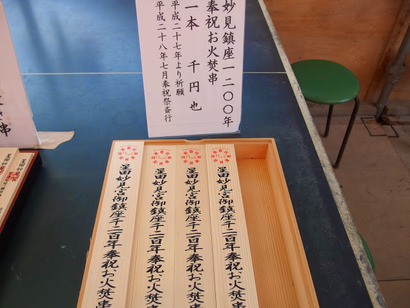 妙見鎮座一二〇〇年
奉祝お火焚串
一本　千円也
平成二十七年より祈願
平成二十八年七月奉祝祭斎行
星田妙見宮御鎮座千二百年奉祝お火焚串
星田妙見宮御鎮座千二百年奉祝お火焚串
星田妙見宮御鎮座千二百年奉祝お火焚串
星田妙見宮御鎮座千二百年奉祝お火焚串